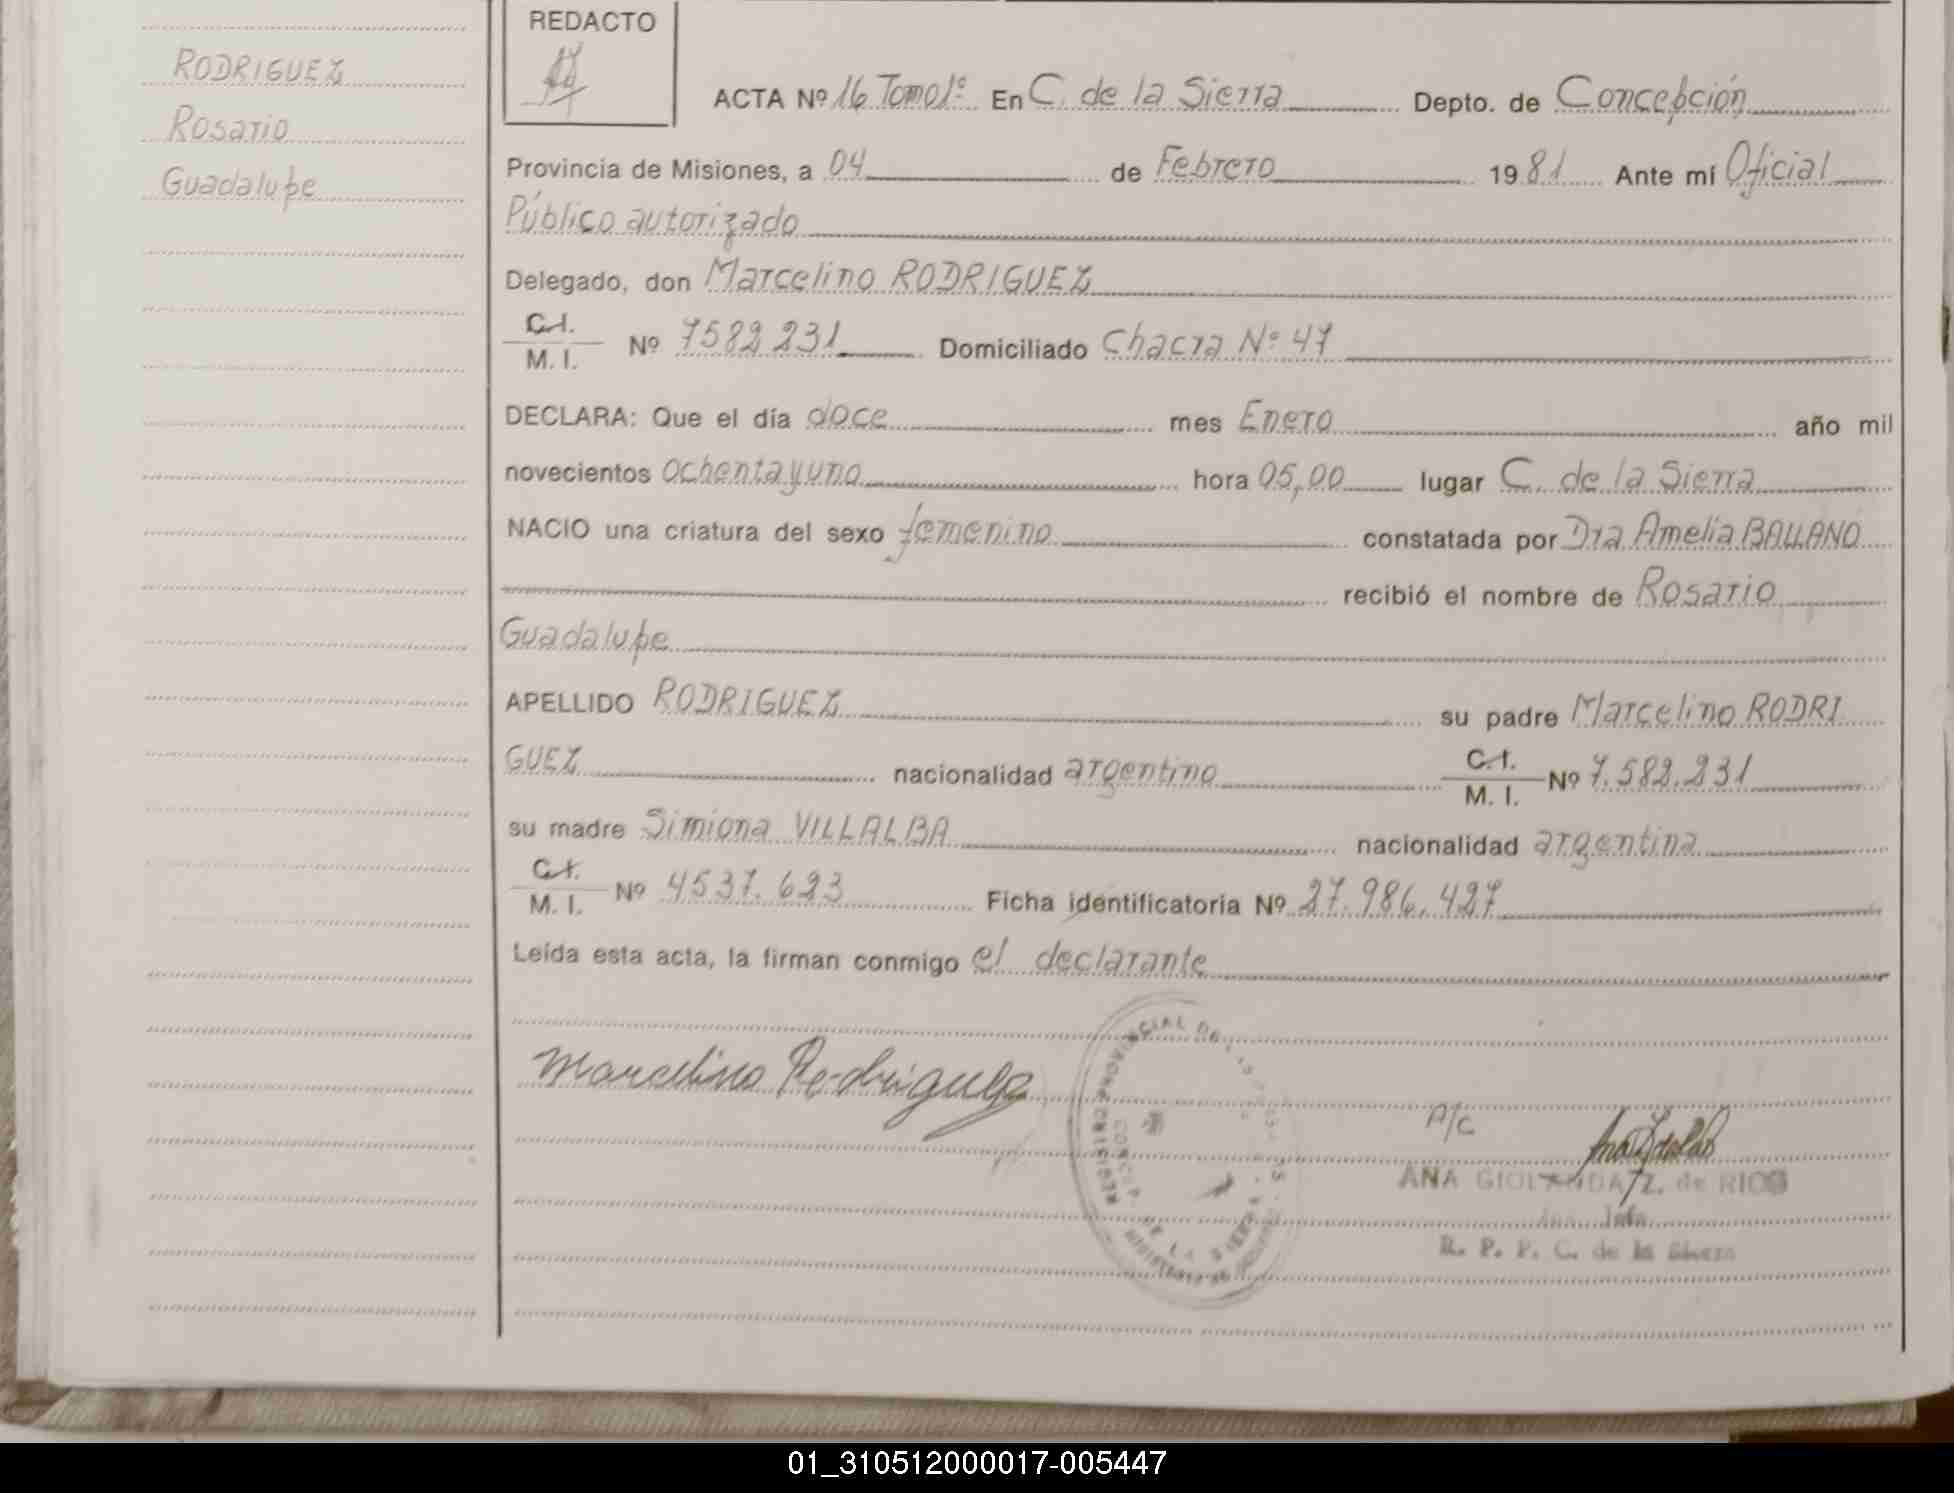 RODRIGUEZ
Rosario
Guadalupe
REDACTO
ACTA Nº 16 Tomo 1º En C. de la Sierra Depto. de Concepción
Provincia de Misiones, a 04 de Febrero 1981 Ante mí Oficial
Público autorizado
Delegado, don Marcelino RODRIGUEZ
C.I.
M. I. Nº 7582231 Domiciliado Chacra Nº 47
DECLARA: Que el día doce mes Enero año mil
novecientos ochenta y uno hora 05,00 lugar C. de la Sierra
NACIO una criatura del sexo femenino constatada por Dra Amelia BALLANO
recibió el nombre de Rosario
Guadalupe
APELLIDO RODRIGUEZ su padre Marcelino RODRI
GUEZ nacionalidad argentino C.I. M. I. Nº 7.582.231
su madre Simiona VILLALBA nacionalidad argentina
C.I.
M. I. Nº 4537.623 Ficha identificatoria Nº 27.986.427
Leída esta acta, la firman conmigo el declarante
Marcelino Rodriguez
A/C
ANA GIOLANDA Z. de RICO
R. P. P. C. de la Sierra
REGISTRO PROVINCIAL DE LAS PERSONAS
CONCEP. DE LA SIERRA
01_310512000017-005447